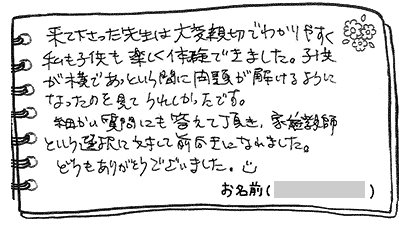 来て下さった先生は大変親切でわかりやすく
私も子供も楽しく体験できました。子供
が横であっという間に問題が解けるように
なったのを見てうれしかったです。
細かい質問にも答えて頂き、家庭教師
という選択に対して前向きになれました。
どうもありがとうございました。
お名前( )